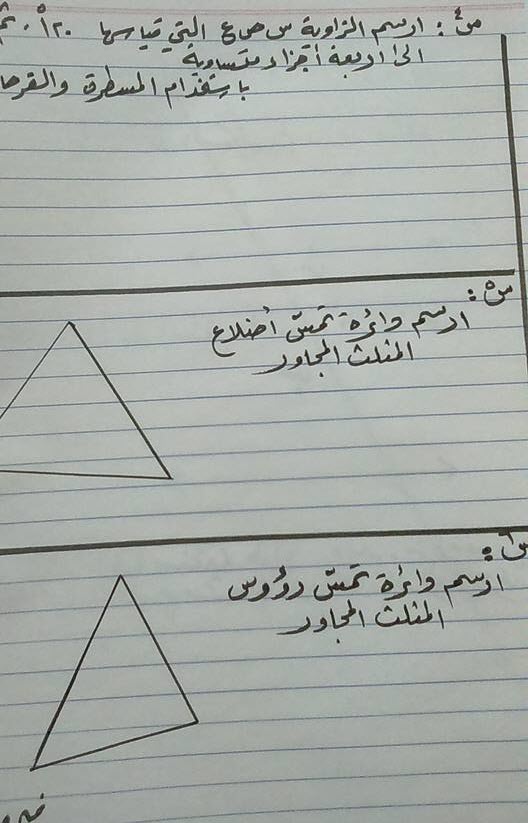 س٤: ارسم الزاوية س ص ع التي قياسها ١٢٠°. ثم
الى اربعة أجزاء متساوية
باستخدام المسطرة والفرجا
س٥:
ارسم دائرة تمسّ أضلاع
المثلث المجاور
س٦:
ارسم دائرة تمسّ رؤوس
المثلث المجاور